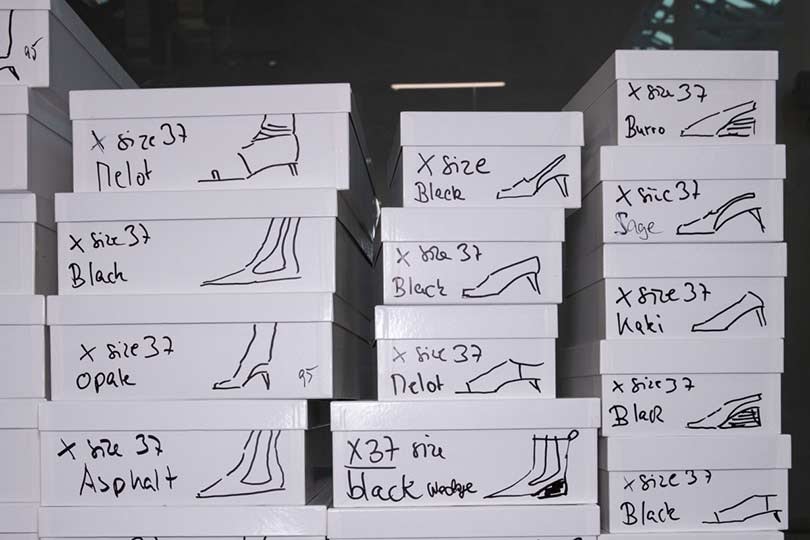 95
X size 37
Melot
X size 37
Black
X size 37
Opale
95
X size 37
Asphalt
X size
Black
X size 37
Black
X size 37
Melot
X37 size
black wedge
X size 37
Burro
X size 37
Sage
X size 37
Kaki
X size 37
Black
X size 37
Black